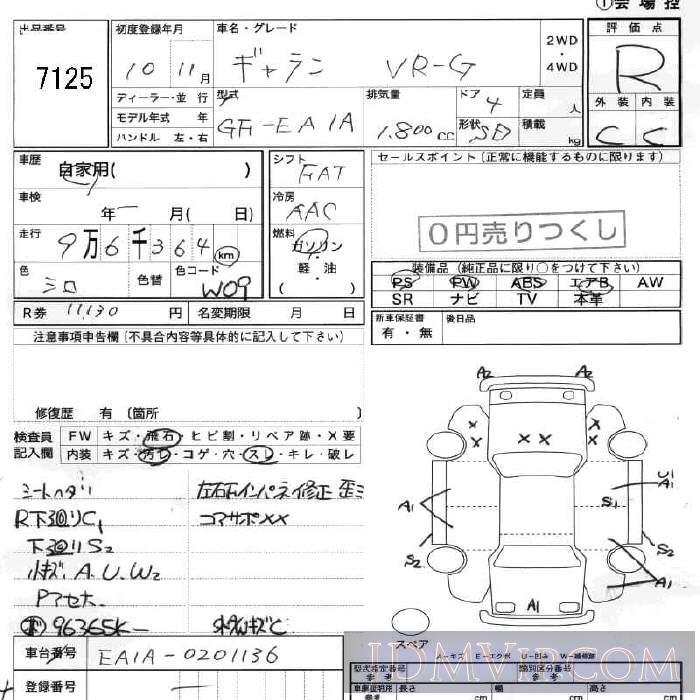 ①会場控
出品番号
7125
初度登録年月
10 11月
車名・グレード
ギャラン VR-G
2WD
・
4WD
評価点
R
外装 内装
C C
ディーラー・並行
モデル年式 年
ハンドル 左・右
型式
GF-EA1A
排気量
1.800cc
ドア
4
形状
SD
定員
人
積載
kg
車歴
自家用( )
車検
年 月( 日)
走行
9万6千364 km
色
シロ
色替
色コード
W09
シフト
FAT
冷房
AAC
燃料
ガソリン
・
軽・油
( )
セールスポイント(正常に機能するものに限ります)
0円売りつくし
装備品(純正品に限り○をつけて下さい)
PS PW ABS エアB AW
SR ナビ TV 本革
R券 11130 円
名変期限 月 日
新車保証書
有・無
後日品
注意事項申告欄(不具合内容等具体的に記入して下さい)
修復歴 有(箇所 )
検査員
記入欄
FW キズ・飛石・ヒビ割・リペア跡・X要
内装 キズ・汚レ・コゲ・穴・スレ・キレ・破レ
シートヘタリ
R下廻リC1
下廻リS2
小キズ A.U.W2
Pアセ大
96365K-
左右下インパネ修正 歪ミ
コアサポXX
A2 A2
X X X X X
A1 U1 A1
S1
S2 S2
A1
A1
スペア
A-キズ E-エクボ U-凹み W-補修跡
車台番号
EA1A-0201136
登録番号
型式指定番号
参考
類別区分番号
参考
車庫証明用
参考
長さ 幅 高さ
cm cm cm
JDMVIP.COM